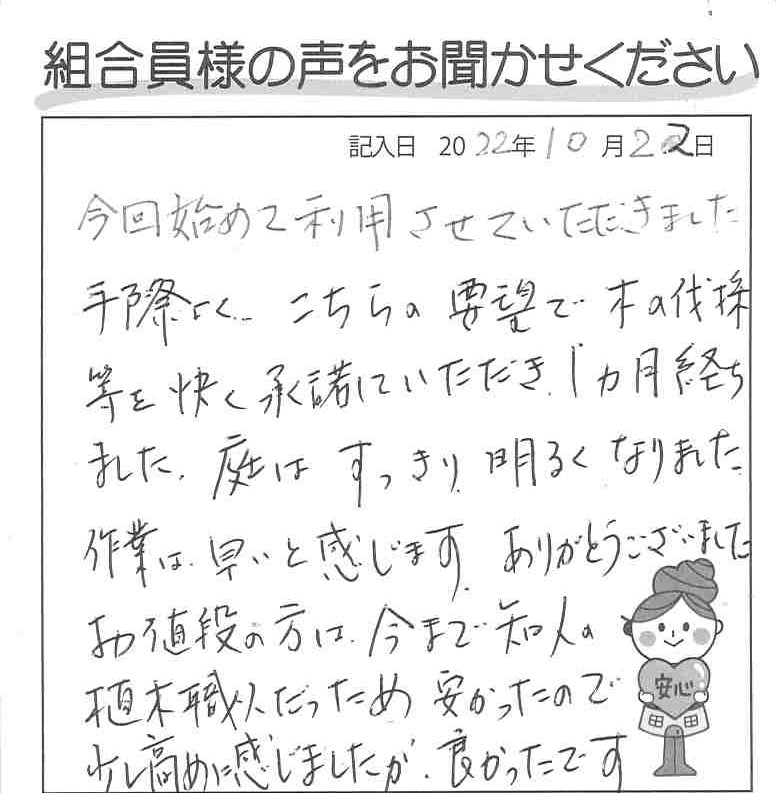 組合員様の声をお聞かせください
記入日 2022年10月22日
今回始めて利用させていただきました
手際よく、こちらの要望で木の伐採
等を快く承諾していただき、1ヵ月経ち
ました。庭はすっきり、明るくなりました
作業は、早いと感じます。ありがとうございました
お値段の方は、今まで知人の
植木職人だったため安かったので
少し高めに感じましたが、良かったです
安心